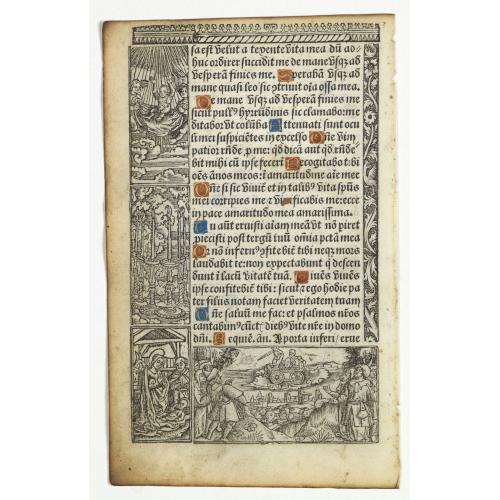 sa est velut a texente vita mea dū ad⸗
huc ordirer succidit me de mane vsqȝ ad
vesperā finies me. Sperabā vsqȝ ad
mane quasi leo sic ꝯtriuit oīa ossa mea.
De mane vsqȝ ad vesperā finies me
sicut pullꝰ hyrūdinis sic clamabo: me
ditabor vt colūba Attenuati sunt ocu
li mei suspiciētes in excelso Dñe vim
patior rñde ꝓ me: qd dicā aut qd rñde⸗
bit mihi cū ipse fecerī Recogitabo tibi
oēs ānos meos: ī amaritudine aīe mee
Dñe si sic viuit̄ et in talibꝰ vita spūs
mei corripies me ⁊ viuificabis me: ecce
in pace amaritudo mea amarissima.
Tu aūt eruisti aīam meā vt nō piret
ꝓiecisti post tergū tuū omīa pctā mea
Qr nō infernꝰ ꝯfitebit̄ tibi neqȝ mors
laudabit te: non expectabunt q̄ descen
dunt ī lacū vitatē tuā. Viuēs viuēs
ipse confitebit̄ tibi: sicut ⁊ ego hodie pa
ter filiis notam faciet veritatem tuam
Dñe saluū me fac: et psalmos nr̄os
cantabimꝰ cūct̄ diebꝰ vite nr̄e in domo
dñi. Requiē. añ. A porta inferi/ erue